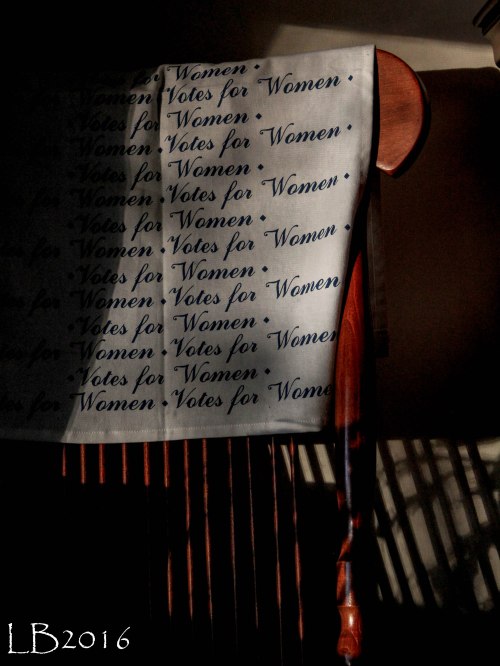 for Women •
Women • Votes for Women •
Votes for Women •
Women • Votes for Women •
Votes for Women •
Women • Votes for Women •
• Votes for Women •
Women • Votes for Women •
• Votes for Women •
Women • Votes for Women
• Votes for Women •
for Women • Votes for Women
• Votes for Women •
for Women • Votes for Wome
LB2016